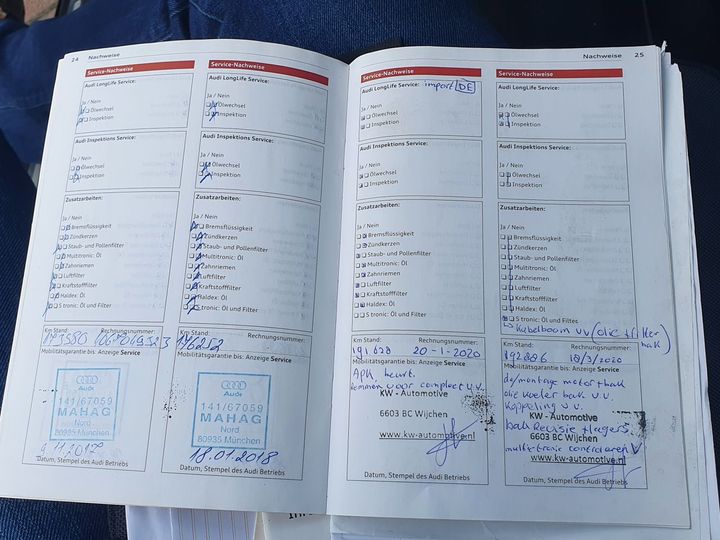 24 Nachweise
Service-Nachweise
Audi LongLife Service:
Ja / Nein
Ölwechsel
Inspektion
Audi Inspektions Service:
Ja / Nein
Ölwechsel
Inspektion
Zusatzarbeiten:
Ja / Nein
Bremsflüssigkeit
Zündkerzen
Staub- und Pollenfilter
Multitronic: Öl
Zahnriemen
Luftfilter
Kraftstofffilter
Haldex: Öl
S tronic: Öl und Filter
Km Stand: Rechnungsnummer:
Mobilitätsgarantie bis: Anzeige Service
Audi
141/67059
MAHAG
Nord
80935 München
Datum, Stempel des Audi Betriebs
Service-Nachweise
Audi LongLife Service:
Ja / Nein
Ölwechsel
Inspektion
Audi Inspektions Service:
Ja / Nein
Ölwechsel
Inspektion
Zusatzarbeiten:
Ja / Nein
Bremsflüssigkeit
Zündkerzen
Staub- und Pollenfilter
Multitronic: Öl
Zahnriemen
Luftfilter
Kraftstofffilter
Haldex: Öl
S tronic: Öl und Filter
Km Stand: Rechnungsnummer:
176252
Mobilitätsgarantie bis: Anzeige Service
Audi
141/67059
MAHAG
Nord
80935 München
18.01.2018
Datum, Stempel des Audi Betriebs
Nachweise 25
Service-Nachweise
Audi LongLife Service: import DE
Ja / Nein
Ölwechsel
Inspektion
Audi Inspektions Service:
Ja / Nein
Ölwechsel
Inspektion
Zusatzarbeiten:
Ja / Nein
Bremsflüssigkeit
Zündkerzen
Staub- und Pollenfilter
Multitronic: Öl
Zahnriemen
Luftfilter
Kraftstofffilter
Haldex: Öl
S tronic: Öl und Filter
Km Stand: Rechnungsnummer:
191 628 20-1-2020
Mobilitätsgarantie bis: Anzeige Service
APK keurt.
Remmen voor compleet v.v.
KW - Automotive
6603 BC Wijchen
www.kw-automotive.nl
Datum, Stempel des Audi Betriebs
Service-Nachweise
Audi LongLife Service:
Ja / Nein
Ölwechsel
Inspektion
Audi Inspektions Service:
Ja / Nein
Ölwechsel
Inspektion
Zusatzarbeiten:
Ja / Nein
Bremsflüssigkeit
Zündkerzen
Staub- und Pollenfilter
Multitronic: Öl
Zahnriemen
Luftfilter
Kraftstofffilter
Haldex: Öl
S tronic: Öl und Filter
Kabelboom v v (olie + filter bak)
Km Stand: Rechnungsnummer:
192886 18/3/2020
Mobilitätsgarantie bis: Anzeige Service
de/montage motor + bak
olie koeler bak v.v.
koppeling v v.
KW - Automotive
bak revisie + lagers
6603 BC Wijchen
multi-tronic controleren
www.kw-automotive.nl
Datum, Stempel des Audi Betriebs